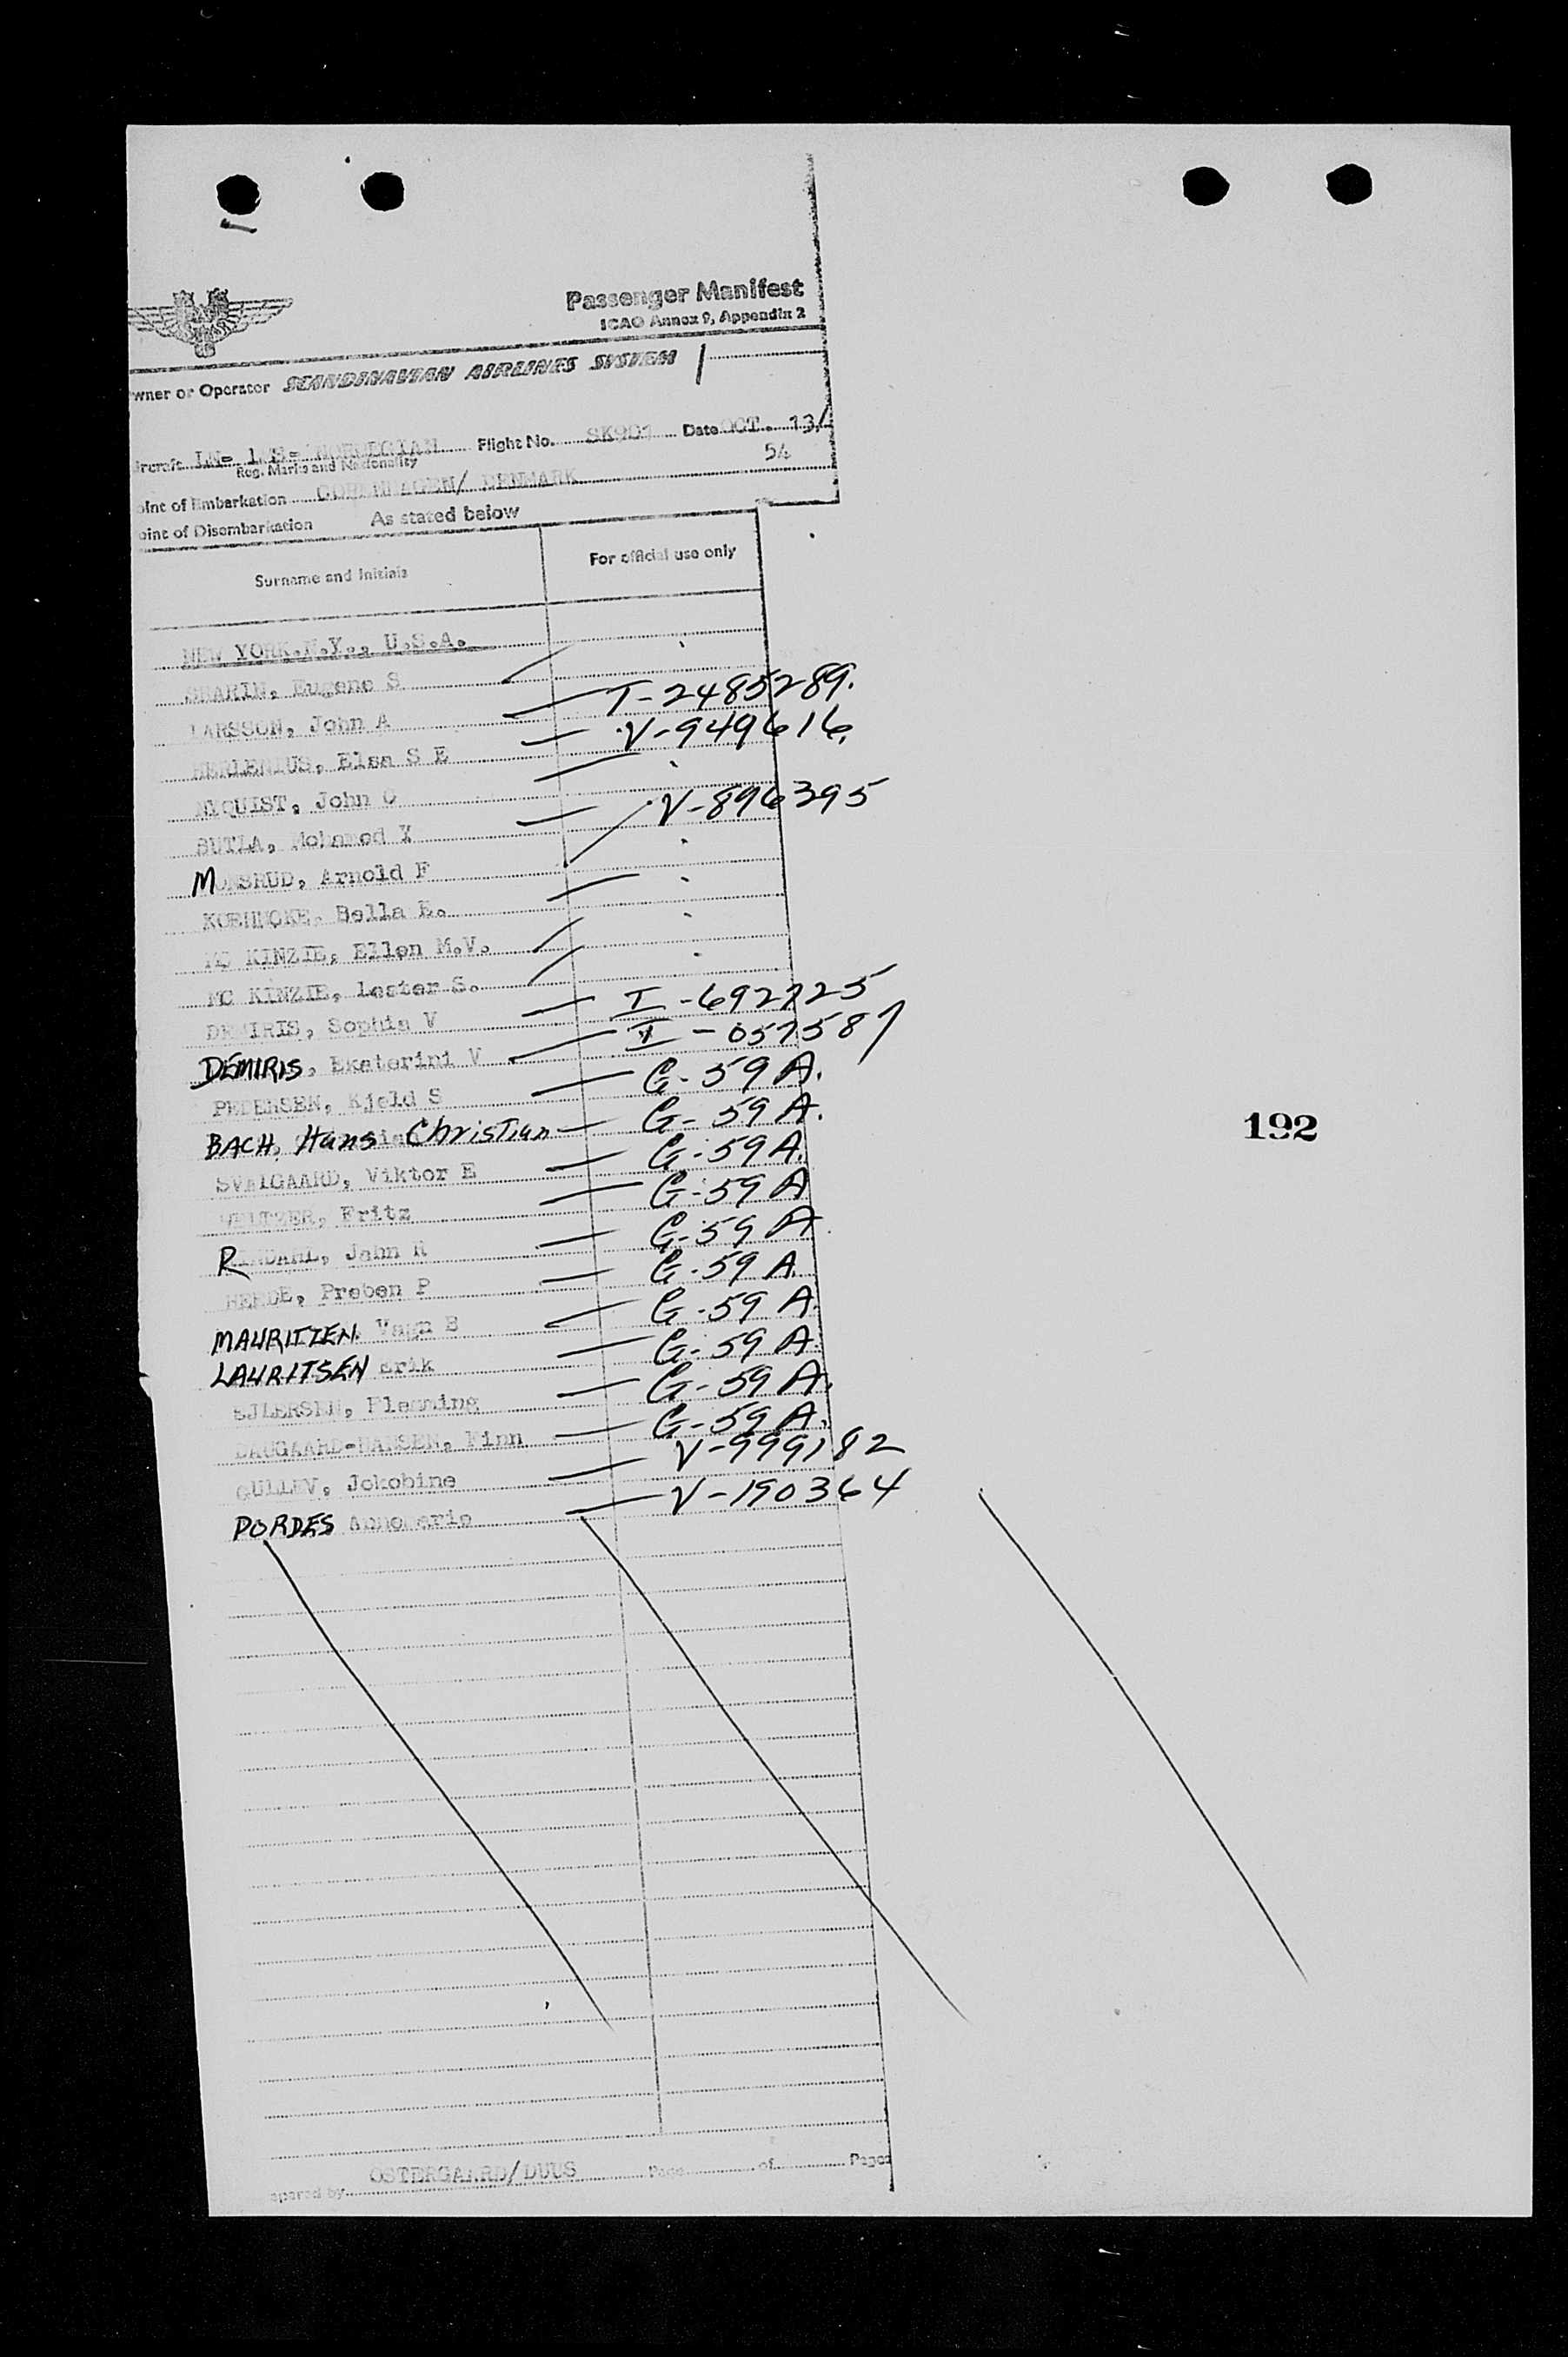 Passenger Manifest
ICAO Annex 9, Appendix 2
wner or Operator SCANDINAVIAN AIRLINES SYSTEM
ircraft LN- NORWEGIAN Flight No. SK901 Date OCT. 13/
Reg. Marks and Nationality
54
oint of Embarkation COPENHAGEN/ DENMARK
oint of Disembarkation As stated below
Surname and Initials For official use only
NEW YORK.N.Y., U.S.A.
Eugene S
LARSSON, John A T-2485289.
HERLENIUS, Elsa S E V-949616.
NYQUIST, John O
BUTLA, Mohamed X V-896395
MONSRUD, Arnold F
Bella E.
MC KINZIE, Ellen M.V.
MC KINZIE, Lester S.
DEMIRIS, Sophia V I-692725
DEMIRIS, Ekaterini V
PEDERSEN, Kjeld S G-59 A.
BACH, Hans Christian G-59 A.
SVALGAARD, Viktor E G-59 A.
Fritz G-59 A
John R G-59 A
Preben P G-59 A.
MAURITZEN. Vagn B G-59 A.
LAURITSEN Erik G-59 A.
EJLERSEN, Flemming G-59 A.
DAUGAARD-HANSEN, Finn G-59 A.
GULLEV, Jokobine V-999182
PORDES Annemarie V-190364
192
epared by OSTERGAARD/DUUS Page of Pages